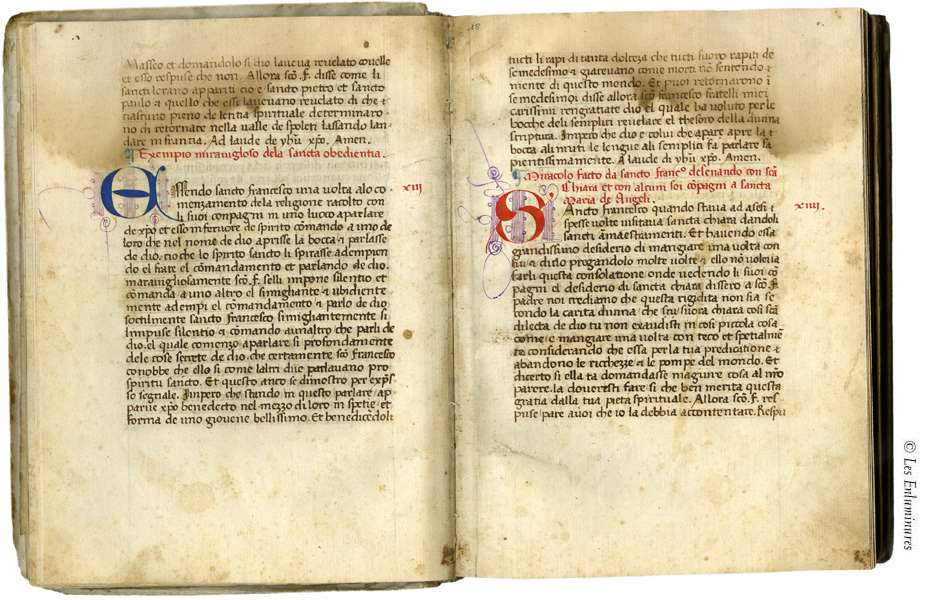 Masseo et domandolo si dio laueua reuelato couelle
et esso respuse che non. Allora sco. F. disse come li
sancti lerano appariti cio e sancto pietro et sancto
paulo & quello che essi laueuano reuelato di che &
ciascuno pieno de letitia spirituale determinaro
no di retornare nella ualle de spoleti lassando lan
dare in francia. Ad laude de yhu xpo. Amen.
Exempio marauiglioso dela sancta obedientia.
Essendo sancto francesco una uolta alo co
xiii
menzamento dela religione racolto con
li suoi conpagni in uno luoco aparlare
de xpo et esso in feruore de spirito comando a uno de
loro che nel nome de dio aprisse la bocca & parlasse
de dio. cio che lo spirito sancto li spirasse adempien
do el frate el comandamento et parlando de dio.
marauigliosamente sco. F.selli impone silentio et
comanda a uno altro el simighante & ubidiente
mente adempi el comandamento & parlo de dio
soctilmente sancto Francesco simighantemente li
impuse silentio & comando aunaltro che parli de
dio. el quale comenzo aparlare si profondamente
dele cose secrete de dio. che certamente sco Francesco
conobbe che ello si come laltri due parlauano pro
spiritu sancto. Et questo anco se dimostro per expss
se segnale. Impero che stando in questo parlare ap
parue xpo benedecto nel mezzo di loro in spetie et
forma de uno giouene bellissimo. Et benedicedoli
18
tucti li rapi di tanta dolceza che tucti fuoro rapiti de
se medesimo & giaceuano come morti no sentendo &
mente di questo mondo. Et puoi retornarono i
se medesimoi disse allora sco francesco fratelli miei
carissimi rengratiate dio el quale ha uoluto per le
bocche deli semplici reuelare el thesoro della diuina
scriptura. Impero che dio e colui che apare apre la &
bocca ali muti & le lengue ali semplici fa parlare sa
pientissimamente. A laude di yhu xpo. Amen.
Miracolo facto da sancto franco delenando con sca
Chiara et con alcuni soi copagni a sancta
Maria de Angeli.
Sancto Francesco quando staua ad asesi &
xiiii.
spesse uolte uisitaua sancta chiara dandoli
sancti amaestramenti. Et hauendo essa
grandissimo desiderio di mangiare una uolta con
lui & dicio pregandolo molte uolte & ello no uoleua
farli questa consolatione onde uedendo li suoi co
pagni el desiderio di sancta chiara dissero a sco F.
padre noi crediamo che questa rigidita non sia se
condo la carita diuina che scu suora chiara cosi sca
dilecta de dio tu non exaudisti in cosi piccola cosa
come e mangiare una uolta con teco et spetialme
te considerando che essa per la tua predicatione &
abandono le richezze & le pompe del mondo. Et
dicerto si ella ta domandasse magiure cosa al nro
parere. la doueresti fare si che ben merita questa
gratia dalla tua pieta spirituale. Allora sco. F. res
puse pare auoi che io la debbia accontentare. Respu
© Les Enluminures